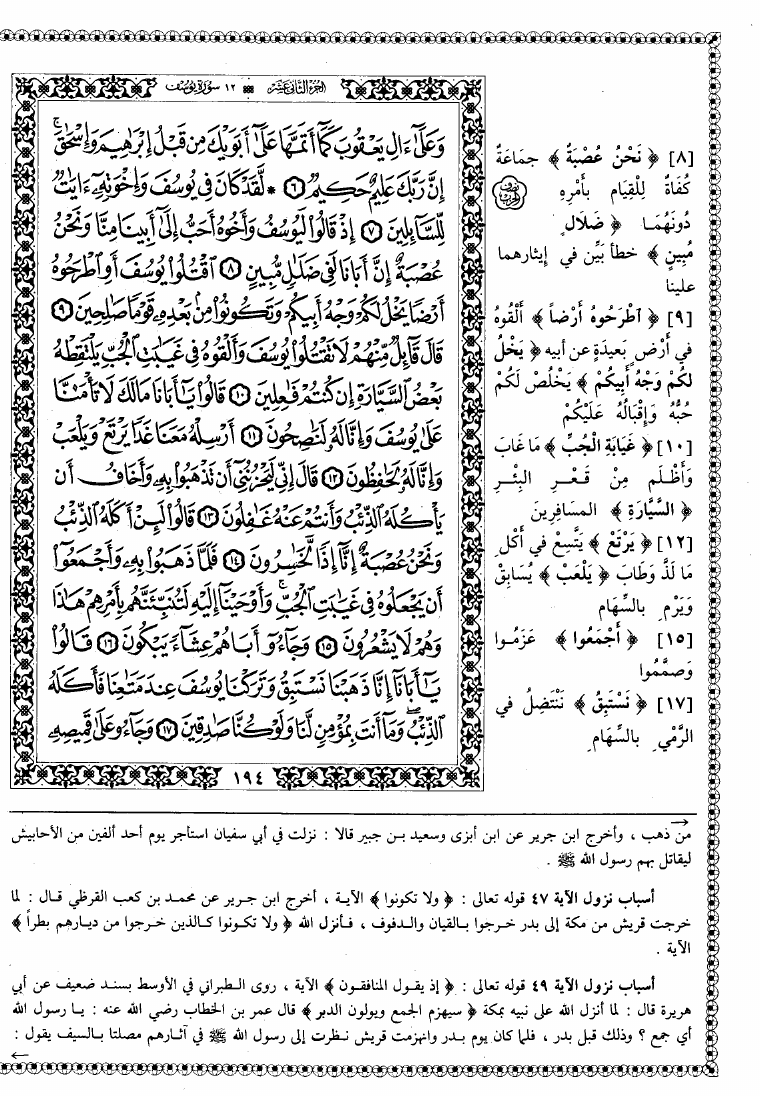 ١٢ سورة يوسف
الجزء الثاني عشر
وَعَلَىٰٓ ءَالِ يَعْقُوبَ كَمَآ أَتَمَّهَا عَلَىٰٓ أَبَوَيْكَ مِن قَبْلُ إِبْرَٰهِيمَ وَإِسْحَٰقَۚ
إِنَّ رَبَّكَ عَلِيمٌ حَكِيمٌ ٦ * لَّقَدْ كَانَ فِى يُوسُفَ وَإِخْوَتِهِۦٓ ءَايَٰتٌ
لِّلسَّآئِلِينَ ٧ إِذْ قَالُوا۟ لَيُوسُفُ وَأَخُوهُ أَحَبُّ إِلَىٰٓ أَبِينَا مِنَّا وَنَحْنُ
عُصْبَةٌ إِنَّ أَبَانَا لَفِى ضَلَٰلٍ مُّبِينٍ ٨ ٱقْتُلُوا۟ يُوسُفَ أَوِ ٱطْرَحُوهُ
أَرْضًا يَخْلُ لَكُمْ وَجْهُ أَبِيكُمْ وَتَكُونُوا۟ مِنۢ بَعْدِهِۦ قَوْمًا صَٰلِحِينَ ٩
قَالَ قَآئِلٌ مِّنْهُمْ لَا تَقْتُلُوا۟ يُوسُفَ وَأَلْقُوهُ فِى غَيَٰبَتِ ٱلْجُبِّ يَلْتَقِطْهُ
بَعْضُ ٱلسَّيَّارَةِ إِن كُنتُمْ فَٰعِلِينَ ١٠ قَالُوا۟ يَٰٓأَبَانَا مَا لَكَ لَا تَأْمَ۫نَّا
عَلَىٰ يُوسُفَ وَإِنَّا لَهُۥ لَنَٰصِحُونَ ١١ أَرْسِلْهُ مَعَنَا غَدًا يَرْتَعْ وَيَلْعَبْ
وَإِنَّا لَهُۥ لَحَٰفِظُونَ ١٢ قَالَ إِنِّى لَيَحْزُنُنِىٓ أَن تَذْهَبُوا۟ بِهِۦ وَأَخَافُ أَن
يَأْكُلَهُ ٱلذِّئْبُ وَأَنتُمْ عَنْهُ غَٰفِلُونَ ١٣ قَالُوا۟ لَئِنْ أَكَلَهُ ٱلذِّئْبُ
وَنَحْنُ عُصْبَةٌ إِنَّآ إِذًا لَّخَٰسِرُونَ ١٤ فَلَمَّا ذَهَبُوا۟ بِهِۦ وَأَجْمَعُوٓا۟
أَن يَجْعَلُوهُ فِى غَيَٰبَتِ ٱلْجُبِّۚ وَأَوْحَيْنَآ إِلَيْهِ لَتُنَبِّئَنَّهُم بِأَمْرِهِمْ هَٰذَا
وَهُمْ لَا يَشْعُرُونَ ١٥ وَجَآءُوٓ أَبَاهُمْ عِشَآءً يَبْكُونَ ١٦ قَالُوا۟
يَٰٓأَبَانَآ إِنَّا ذَهَبْنَا نَسْتَبِقُ وَتَرَكْنَا يُوسُفَ عِندَ مَتَٰعِنَا فَأَكَلَهُ
ٱلذِّئْبُۖ وَمَآ أَنتَ بِمُؤْمِنٍ لَّنَا وَلَوْ كُنَّا صَٰدِقِينَ ١٧ وَجَآءُو عَلَىٰ قَمِيصِهِۦ
١٩٤
[٨] ﴿ نَحْنُ عُصْبَةٌ ﴾ جمَاعَةٌ
كُفَاةٌ لِلْقِيَام بأَمْرِهِ
نصف الحزب
دُونَهُمَا ﴿ ضَلَالٍ
مُبِينٍ ﴾ خطأ بَيِّن في إيثارهما
علينا
[٩] ﴿ اطْرَحُوهُ أَرْضاً ﴾ أَلْقُوهُ
في أَرْضٍ بَعِيدَةٍ عن أبيه ﴿ يَخْلُ
لكُمْ وَجْهُ أَبِيكُمْ ﴾ يَخْلُص لَكُمْ
حُبُّهُ وَإِقْبَالُهُ عَلَيْكُمْ
[١٠] ﴿ غَيَابَةِ الْجُبِّ ﴾ مَا غَابَ
وَأَظْلَم مِنْ قَعْرِ البِئْرِ
﴿ السَّيَّارَةِ ﴾ المسافِرِينَ
[١٢] ﴿ يَرْتَعْ ﴾ يَتَّسِعْ في أَكْلِ
مَا لَذَّ وَطَابَ ﴿ يَلْعَبْ ﴾ يُسَابِقْ
وَيَرْمِ بالسِّهَام
[١٥] ﴿ أَجْمَعُوا ﴾ عَزَمُوا
وَصَمَّمُوا
[١٧] ﴿ نَسْتَبِقُ ﴾ نَنْتَضِلُ في
الرَّمْيِ بالسِّهَامِ
من ذهب ، وأخرج ابن جرير عن ابن أبزى وسعيد بن جبير قالا : نزلت في أبي سفيان استأجر يوم أحد ألفين من الأحابيش
ليقاتل بهم رسول الله ﷺ .
أسباب نزول الآية ٤٧ قوله تعالى : ﴿ ولا تكونوا ﴾ الآية ، أخرج ابن جرير عن محمد بن كعب القرظي قال : لما
خرجت قريش من مكة إلى بدر خرجوا بالقيان والدفوف ، فأنزل الله ﴿ ولا تكونوا كالذين خرجوا من ديارهم بطراً ﴾
الآية .
أسباب نزول الآية ٤٩ قوله تعالى : ﴿ إذ يقول المنافقون ﴾ الآية ، روى الطبراني في الأوسط بسند ضعيف عن أبي
هريرة قال : لما أنزل الله على نبيه بمكة ﴿ سيهزم الجمع ويولون الدبر ﴾ قال عمر بن الخطاب رضي الله عنه : يا رسول الله
أي جمع ؟ وذلك قبل بدر ، فلما كان يوم بدر وانهزمت قريش نظرت إلى رسول الله ﷺ في آثارهم مصلتا بالسيف يقول :